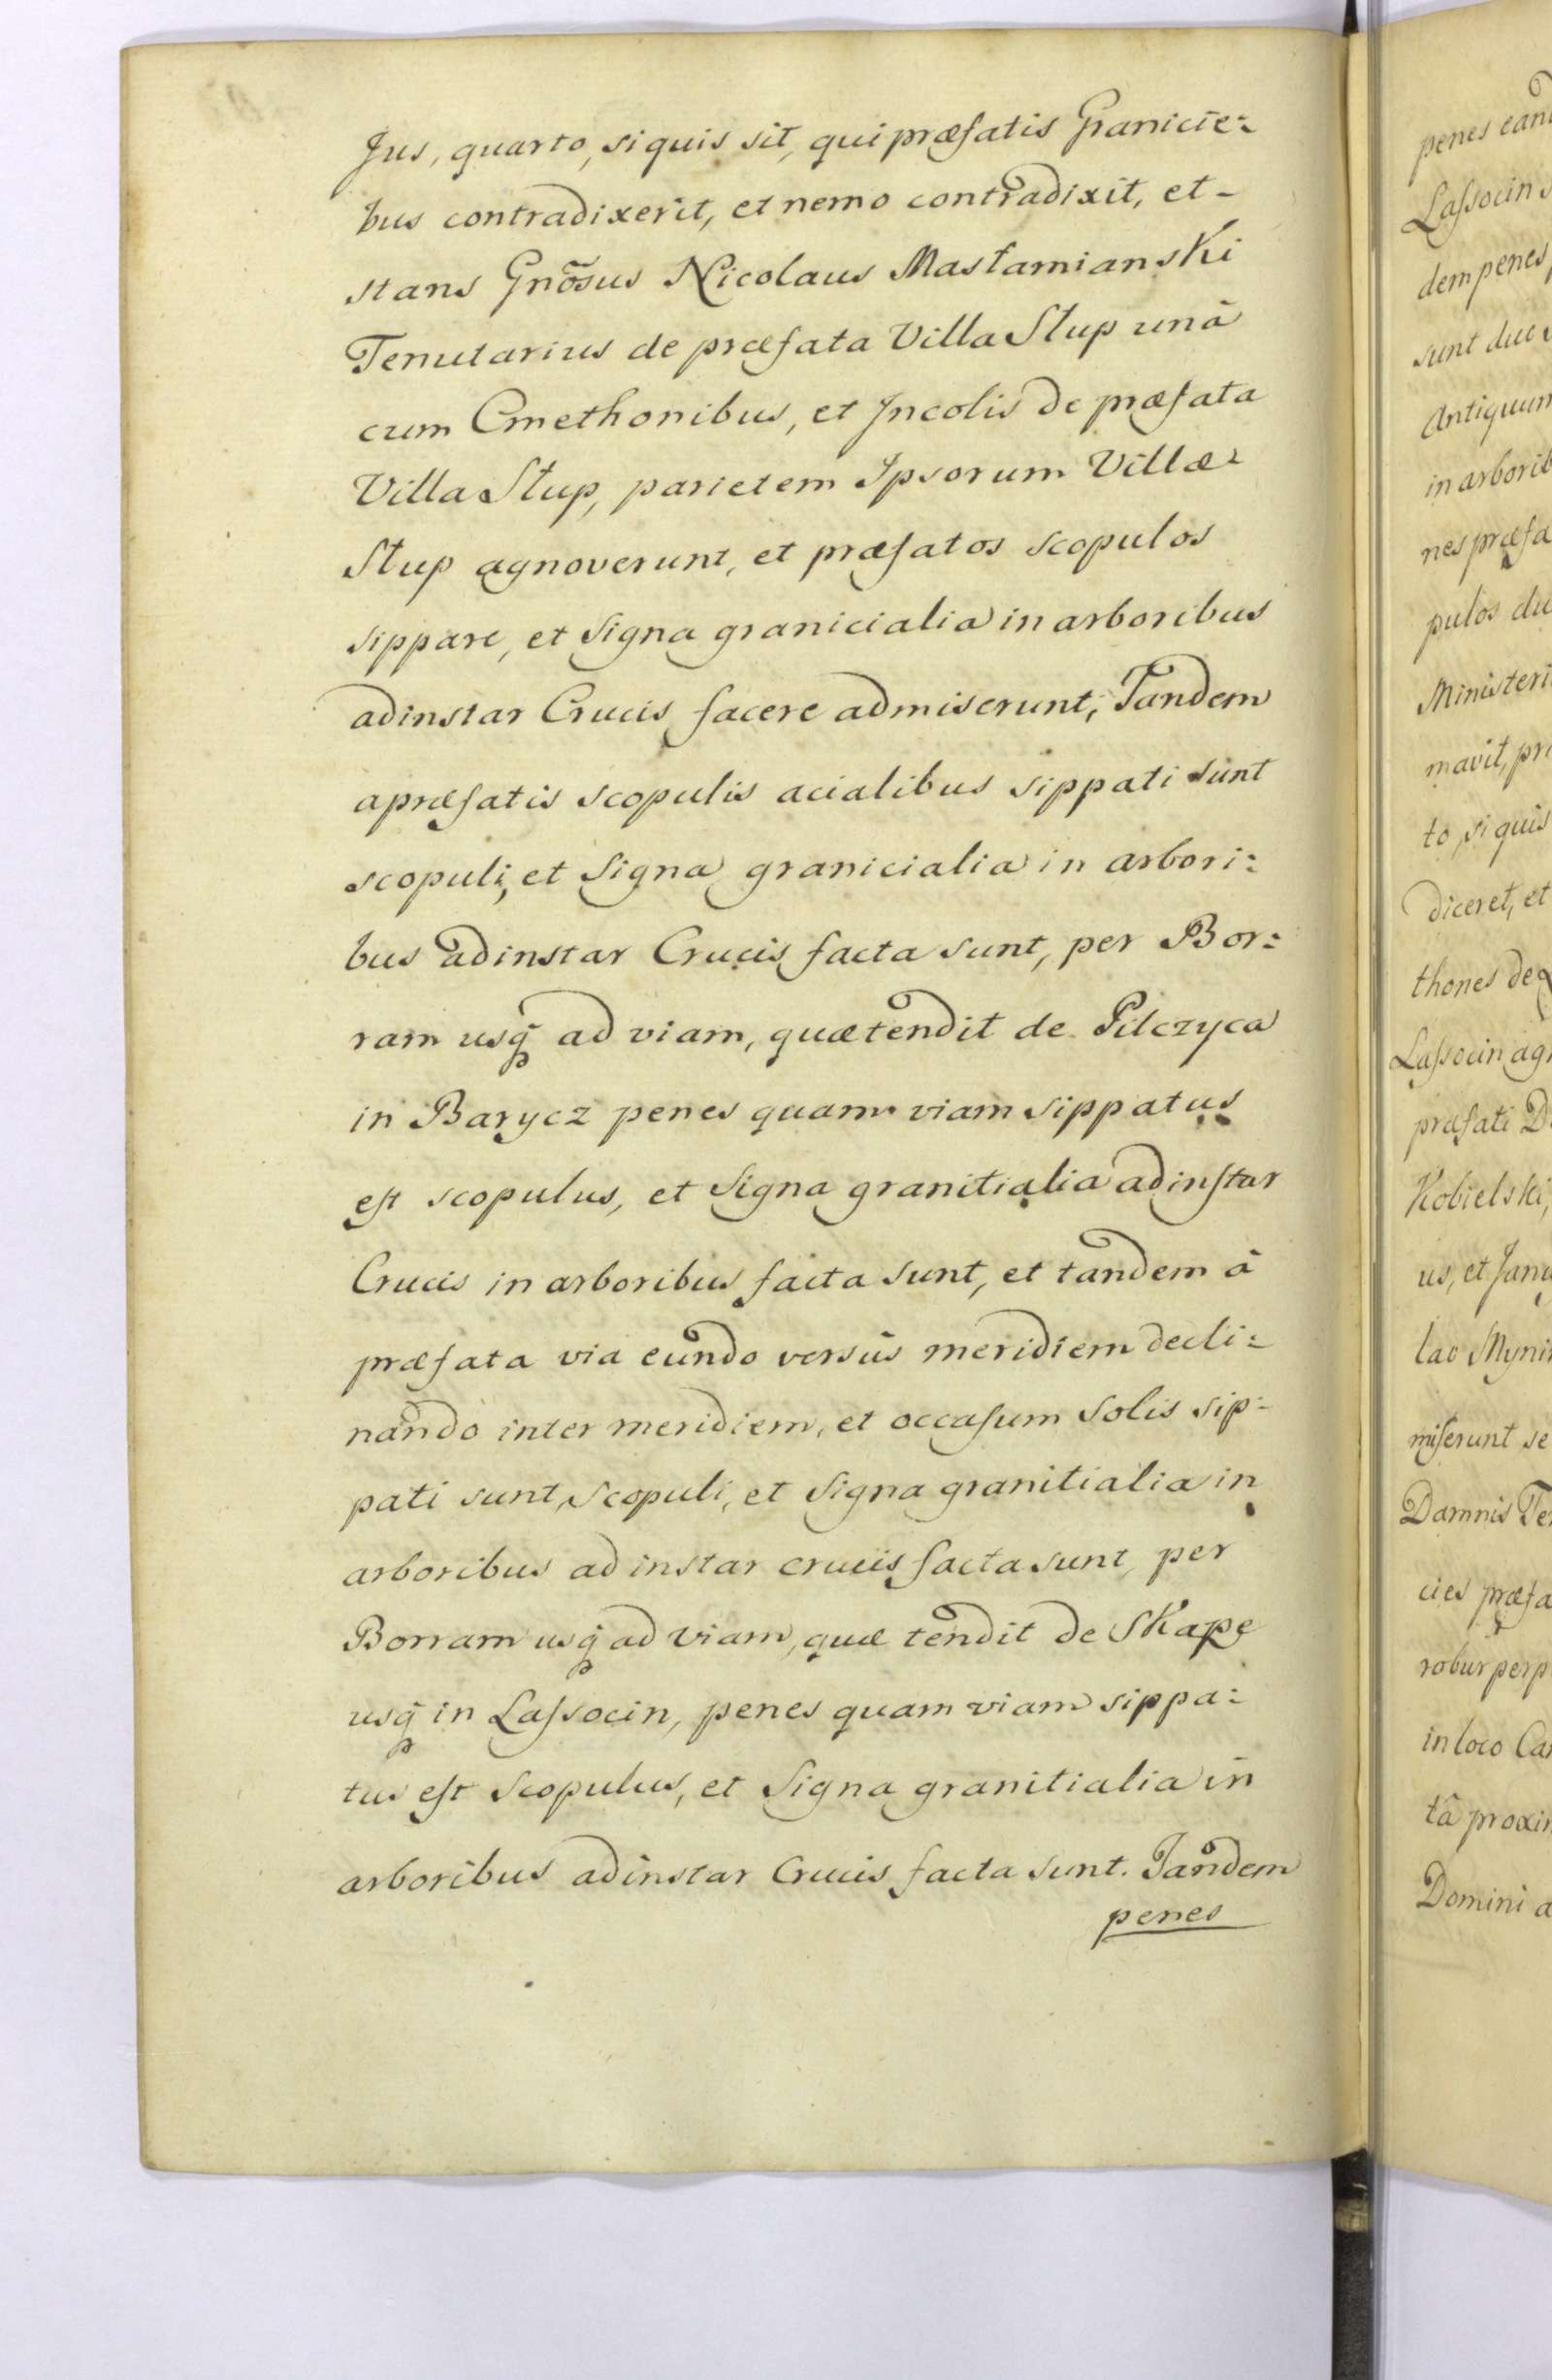 Jus, quarto, si quis sit, qui præfatis Granicie:
bus contradixerit, et nemo contradixit, et -
stans Gnõsus Nicolaus Masłamianski
Tenutarius de præfata Villa Słup unâ
cum Cmethonibus, et Incolis de præfata
Villa Słup, parietem Ipsorum Villæ
Słup agnoverunt, et præfatos scopulos
sippare, et Signa granicialia in arboribus
adinstar Crucis facere admiserunt; Tandem
a præfatis scopulis acialibus sippati sunt
scopuli, et Signa granicialia in arbori:
bus adinstar Crucis facta sunt, per Bor:
ram usq̃ ad viam, quæ tendit de Pilczyca
in Barycz penes quam viam sippatus
est scopulus, et Signa granitialia adinstar
Crucis in arboribus facta sunt, et tandem â
præfata via eundo versùs meridiem decli:
nando inter meridiem, et occasum Solis sip:
pati sunt Scopuli, et Signa granitialia in
arboribus ad instar crucis facta sunt, per
Borram usq̃ ad viam, quæ tendit de Skąpe
usq̃ in Lassocin, penes quam viam sippa:
tus est Scopulus, et Signa granitialia in
arboribus adinstar Crucis facta sunt. Tandem
penes
Lassocin
dem penes
sunt duo
Antiquum
in arborib
nes præfa
pulos du
Ministeri
mavit, pr
to, si quis
diceret, et
thones de
Lassocin ag
præfati D
Kobielski,
us, et Jan
lao Myni
miserunt se
Damnis Te
cies præfa
robur perp
in loco Ca
tâ proxi
Domini a